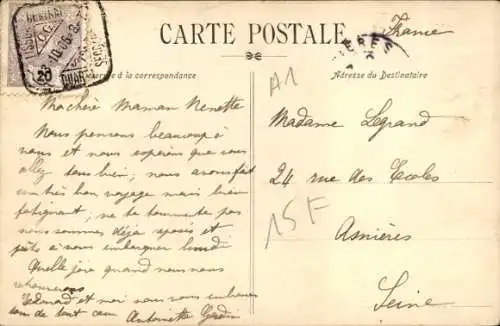 CARTE POSTALE
France
à la correspondance
Adresse du Destinataire
A1
20
Ma chère Maman Nenette
Nous pensons beaucoup à
vous et nous espérons que vous
allez bien; nous avons fait
un très bon voyage mais bien
fatigant; ne te tourmente pas
nous sommes déjà reposés et
prêts à nous embarquer lundi
Quelle joie quand nous nous
reverrons
Edouard et moi nous vous embrassons
de tout cœur Antoinette
Madame Legrand
24 rue des Ecoles
15F
Asnières
Seine